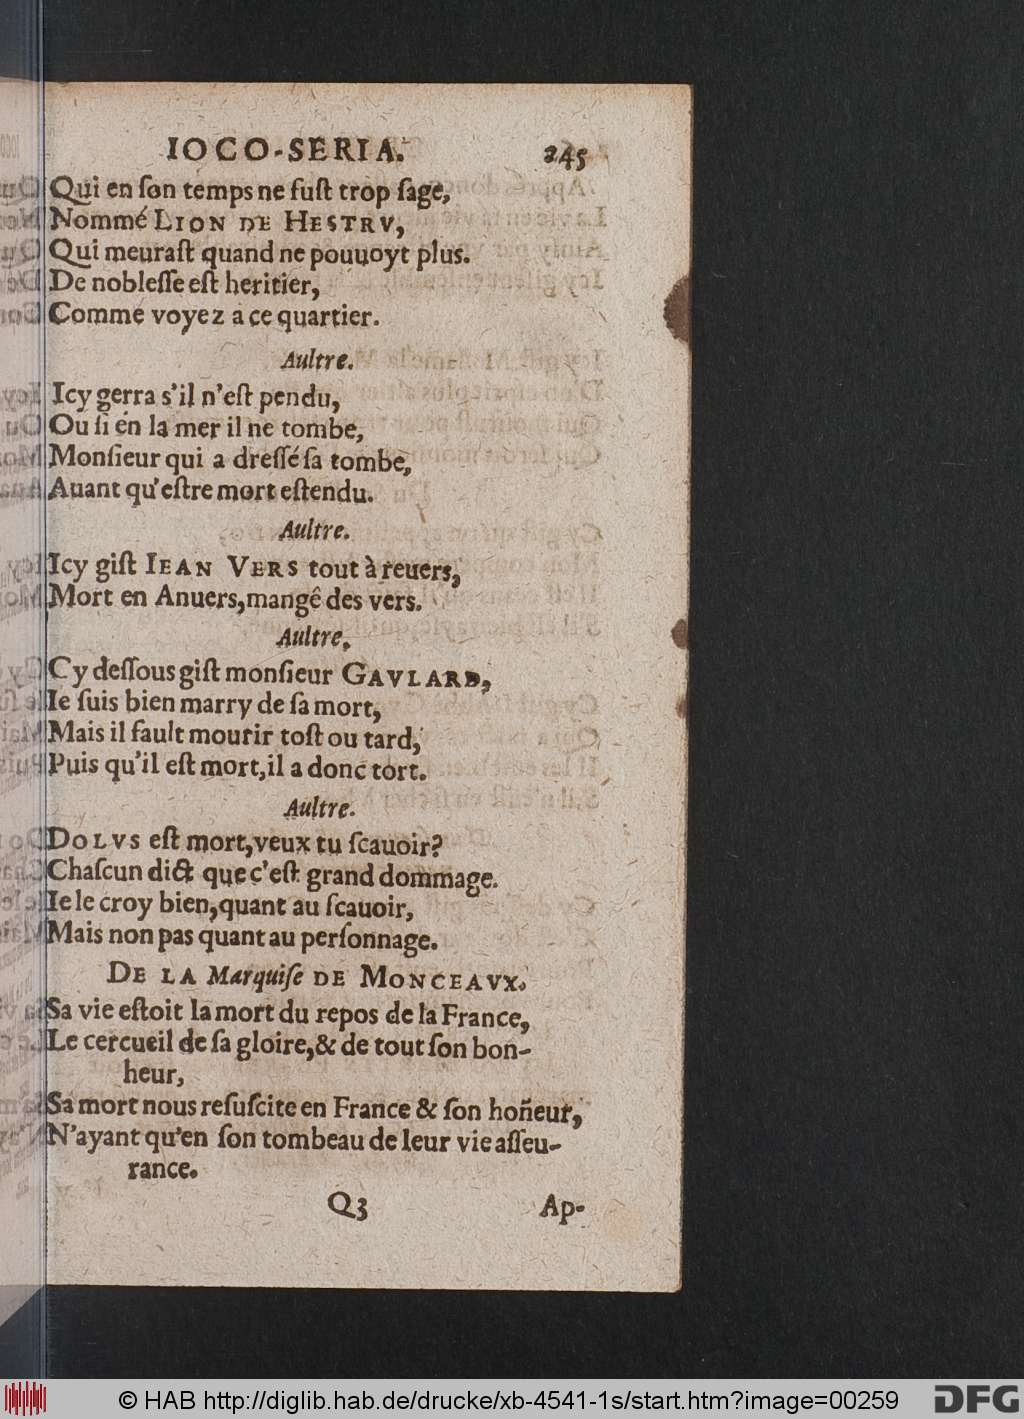 IOCO-SERIA. 245
Qui en ſon temps ne fuſt trop ſage,
Nommé LION DE HESTRV,
Qui meuraſt quand ne pouuoyt plus.
De nobleſſe eſt heritier,
Comme voyez a ce quartier.
Aultre.
Icy gerra s'il n'eſt pendu,
Ou ſi en la mer il ne tombe,
Monſieur qui a dreſſé ſa tombe,
Auant qu'eſtre mort eſtendu.
Aultre.
Icy giſt IEAN VERS tout à reuers,
Mort en Anuers, mangê des vers.
Aultre.
Cy deſſous giſt monſieur GAVLARD,
Ie ſuis bien marry de ſa mort,
Mais il fault mourir toſt ou tard,
Puis qu'il eſt mort, il a donc tort.
Aultre.
DOLVS eſt mort, veux tu ſcauoir?
Chaſcun dict que c'eſt grand dommage.
Ie le croy bien, quant au ſcauoir,
Mais non pas quant au perſonnage.
DE LA Marquiſe DE MONCEAVX.
Sa vie eſtoit la mort du repos de la France,
Le cercueil de ſa gloire, & de tout ſon bon-
heur,
Sa mort nous reſuſcite en France & ſon hoñeur,
N'ayant qu'en ſon tombeau de leur vie aſſeu-
rance.
Q3 Ap-
© HAB http://diglib.hab.de/drucke/xb-4541-1s/start.htm?image=00259 DFG